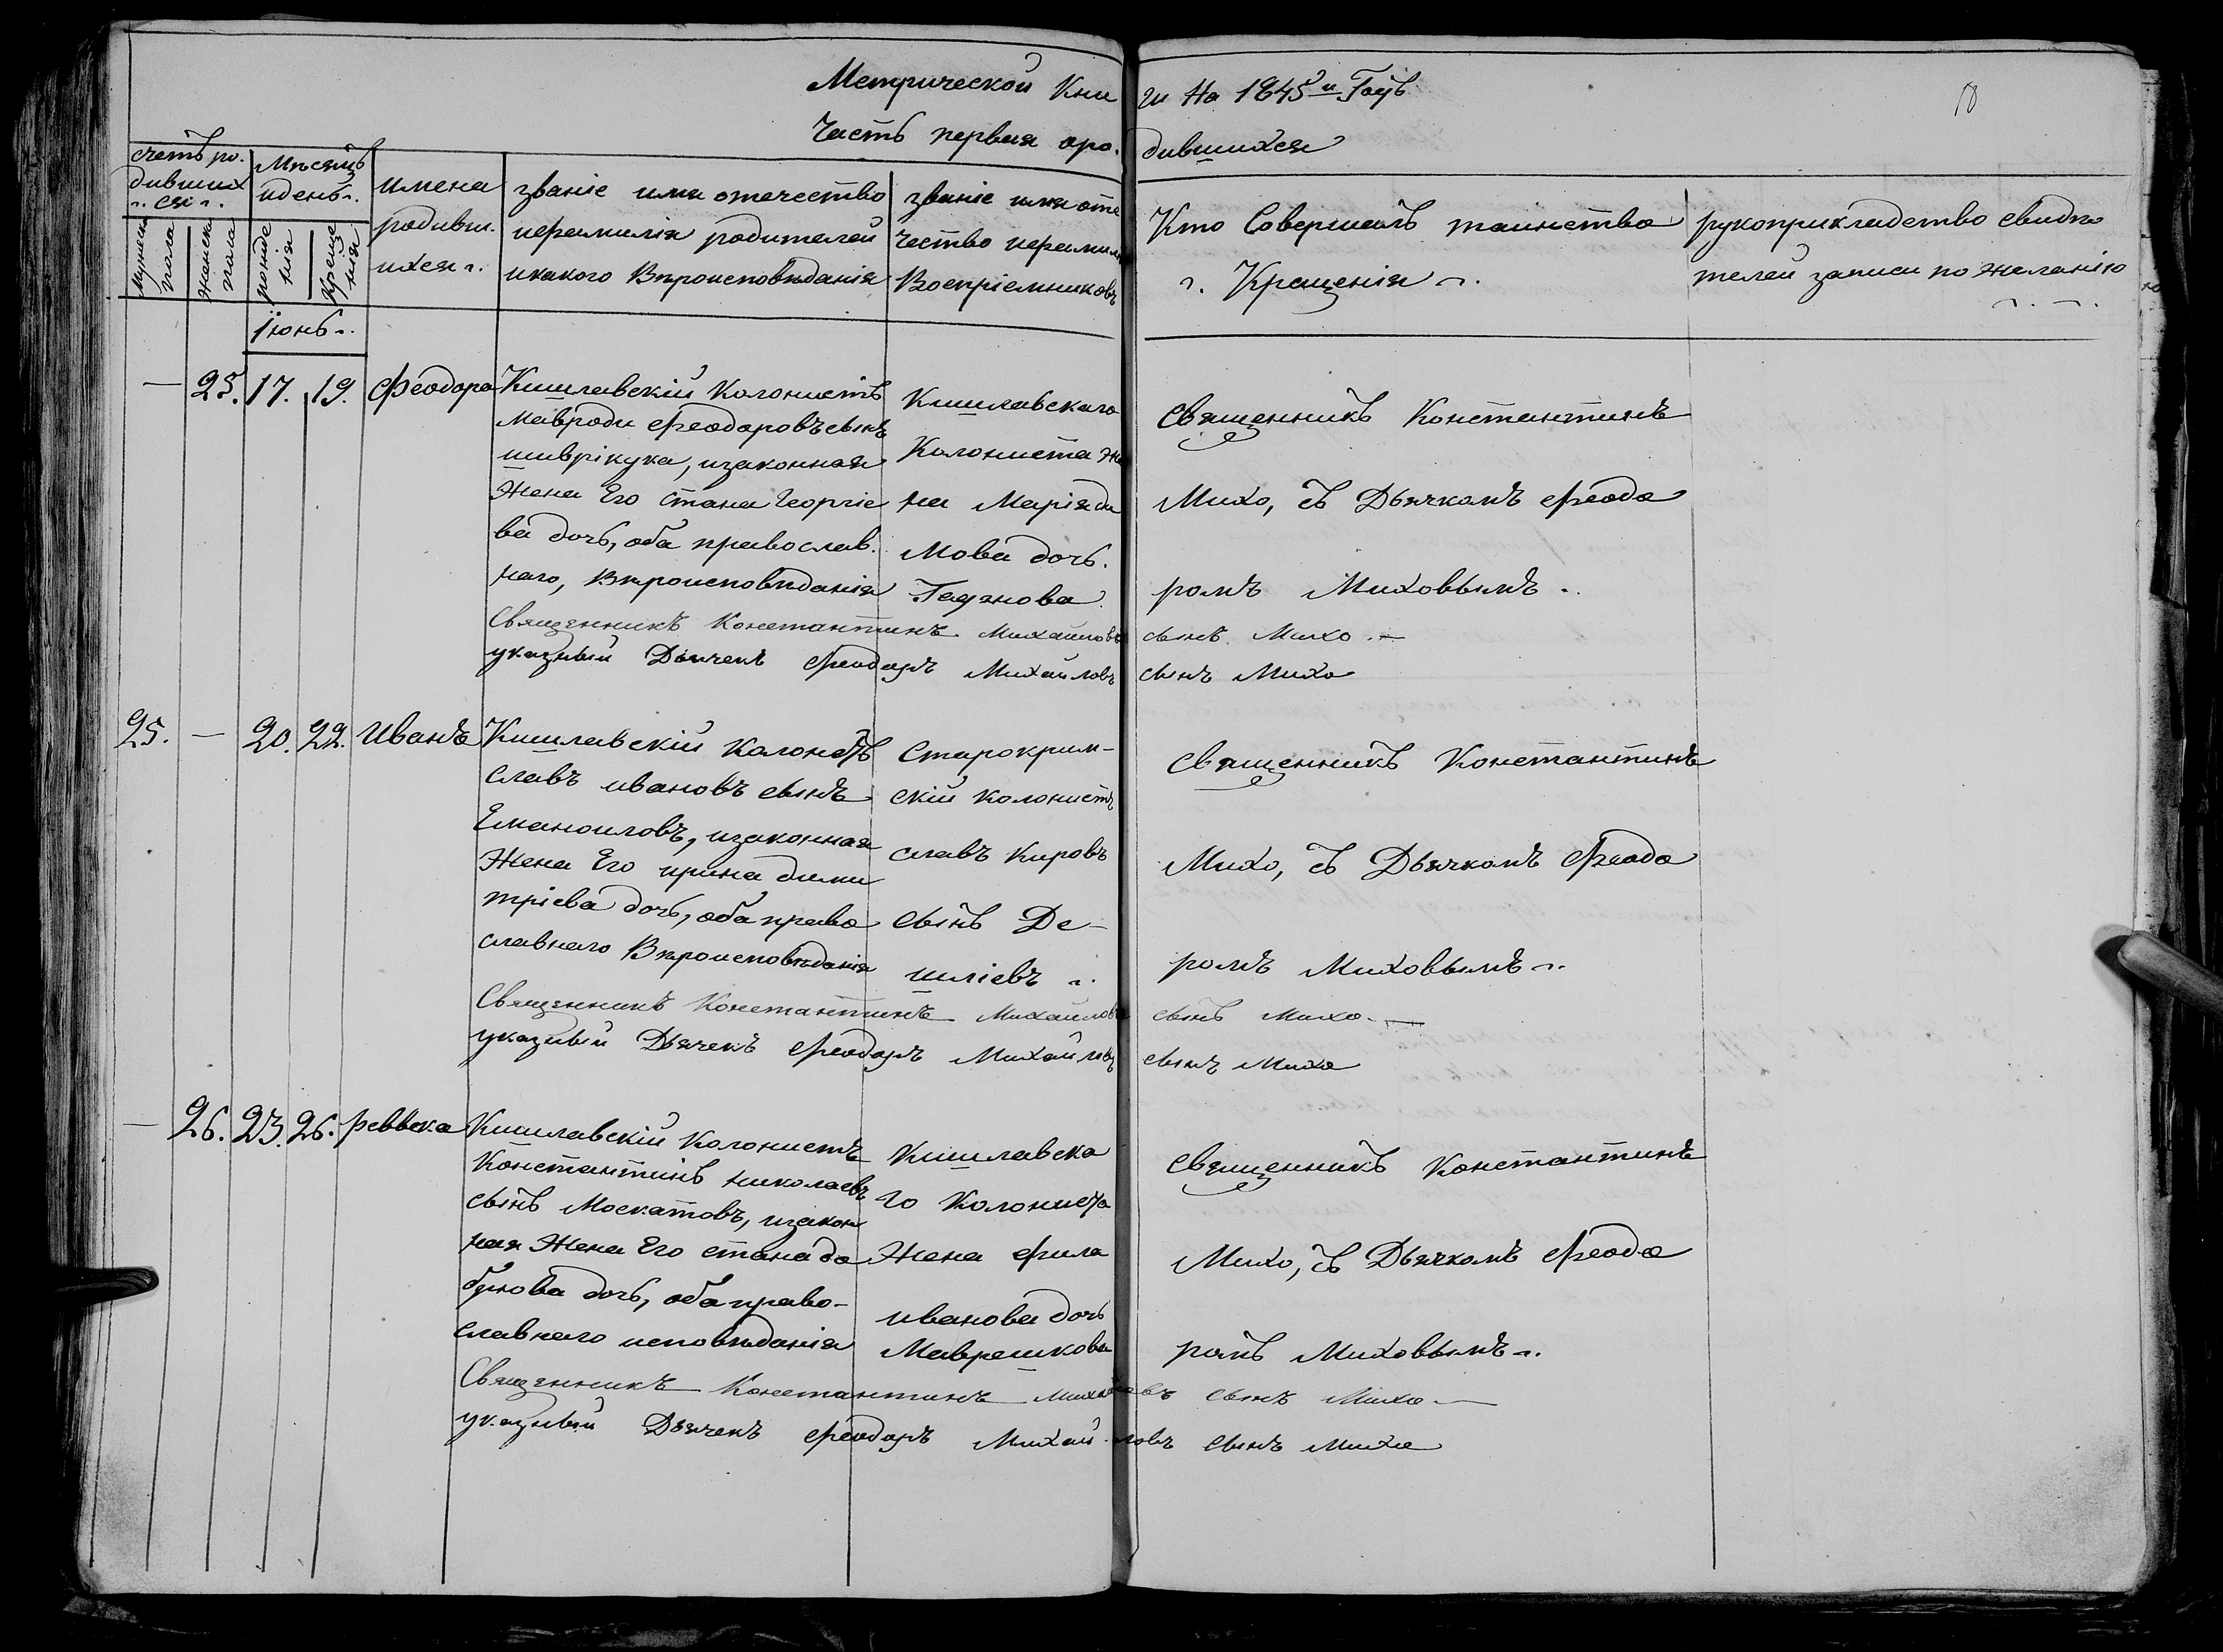 Метрической Книги На 1845й Годъ
10
Часть первая о родившихся
счетъ ро-
дивших
ся
Мѣсяцъ
и день
имена
родивш-
ихся
званіе имя отечество
и фамилія родителей
и какого Вѣроисповѣданія
званіе имя оте
чество и фамилі
Воспріемниковъ
Кто Совершалъ таинство
Крещенія
рукоприкладство свидѣ
телей записи по желанію
мужеска
пола
женска
пола
рожде
нія
креще
нія
Іюнь
— 25. 17. 19. Феодора
Кишлавскій Колонистъ
Мавроди Феодоровъ сынъ
шиврікука, и законная
Жена Его Стана Георгіе
ва дочь, оба православ-
наго, Вѣроисповѣданія
Кишлавскаго
Колониста Же
на Марія ди
мова дочь.
Священникъ Константинъ
Михо, съ Дьячкомъ Феодо
ромъ Миховымъ
Священникъ Константинъ Михайловъ сынъ Михо
указный Дьячекъ Феодоръ Михайловъ сынъ Михо
25. — 20. 22. Иванъ
Кишлавскій Колонстъ
Славъ ивановъ сынъ
Емануиловъ, и законная
Жена Его ирина дими
тріева дочь, оба право
славнаго Вѣроисповѣданія
Старокрим-
скій колонистъ
Славъ Кировъ
сынъ Де-
шліевъ
Священникъ Константинъ
Михо, съ Дьячкомъ Феодо
ромъ Миховымъ
Священникъ Константинъ Михайловъ сынъ Михо
указный Дьячекъ Феодоръ Михайловъ сынъ Михо
— 26. 23. 26. реввека
Кишлавскій Колонистъ
Константинъ николаевъ
сынъ Москатовъ, и закон
ная Жена Его Стана до
брюва дочь, оба право-
славнаго исповѣданія
Кишлавска
го Колониста
Жена Фила
иванова дочь
Маврешкова
Священникъ Константинъ
Михо, съ Дьячкомъ Феодо
ромъ Миховымъ
Священникъ Константинъ Михайловъ сынъ Михо
указный Дьячекъ Феодоръ Михайловъ сынъ Михо